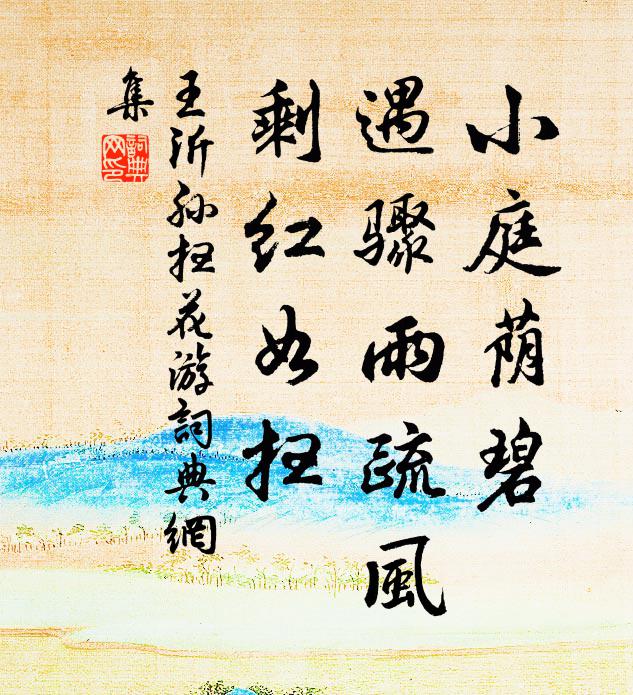 小庭荫碧
遇骤雨疏風
剩红如扫
王沂孙扫花游詞典網
集
詞典
网印